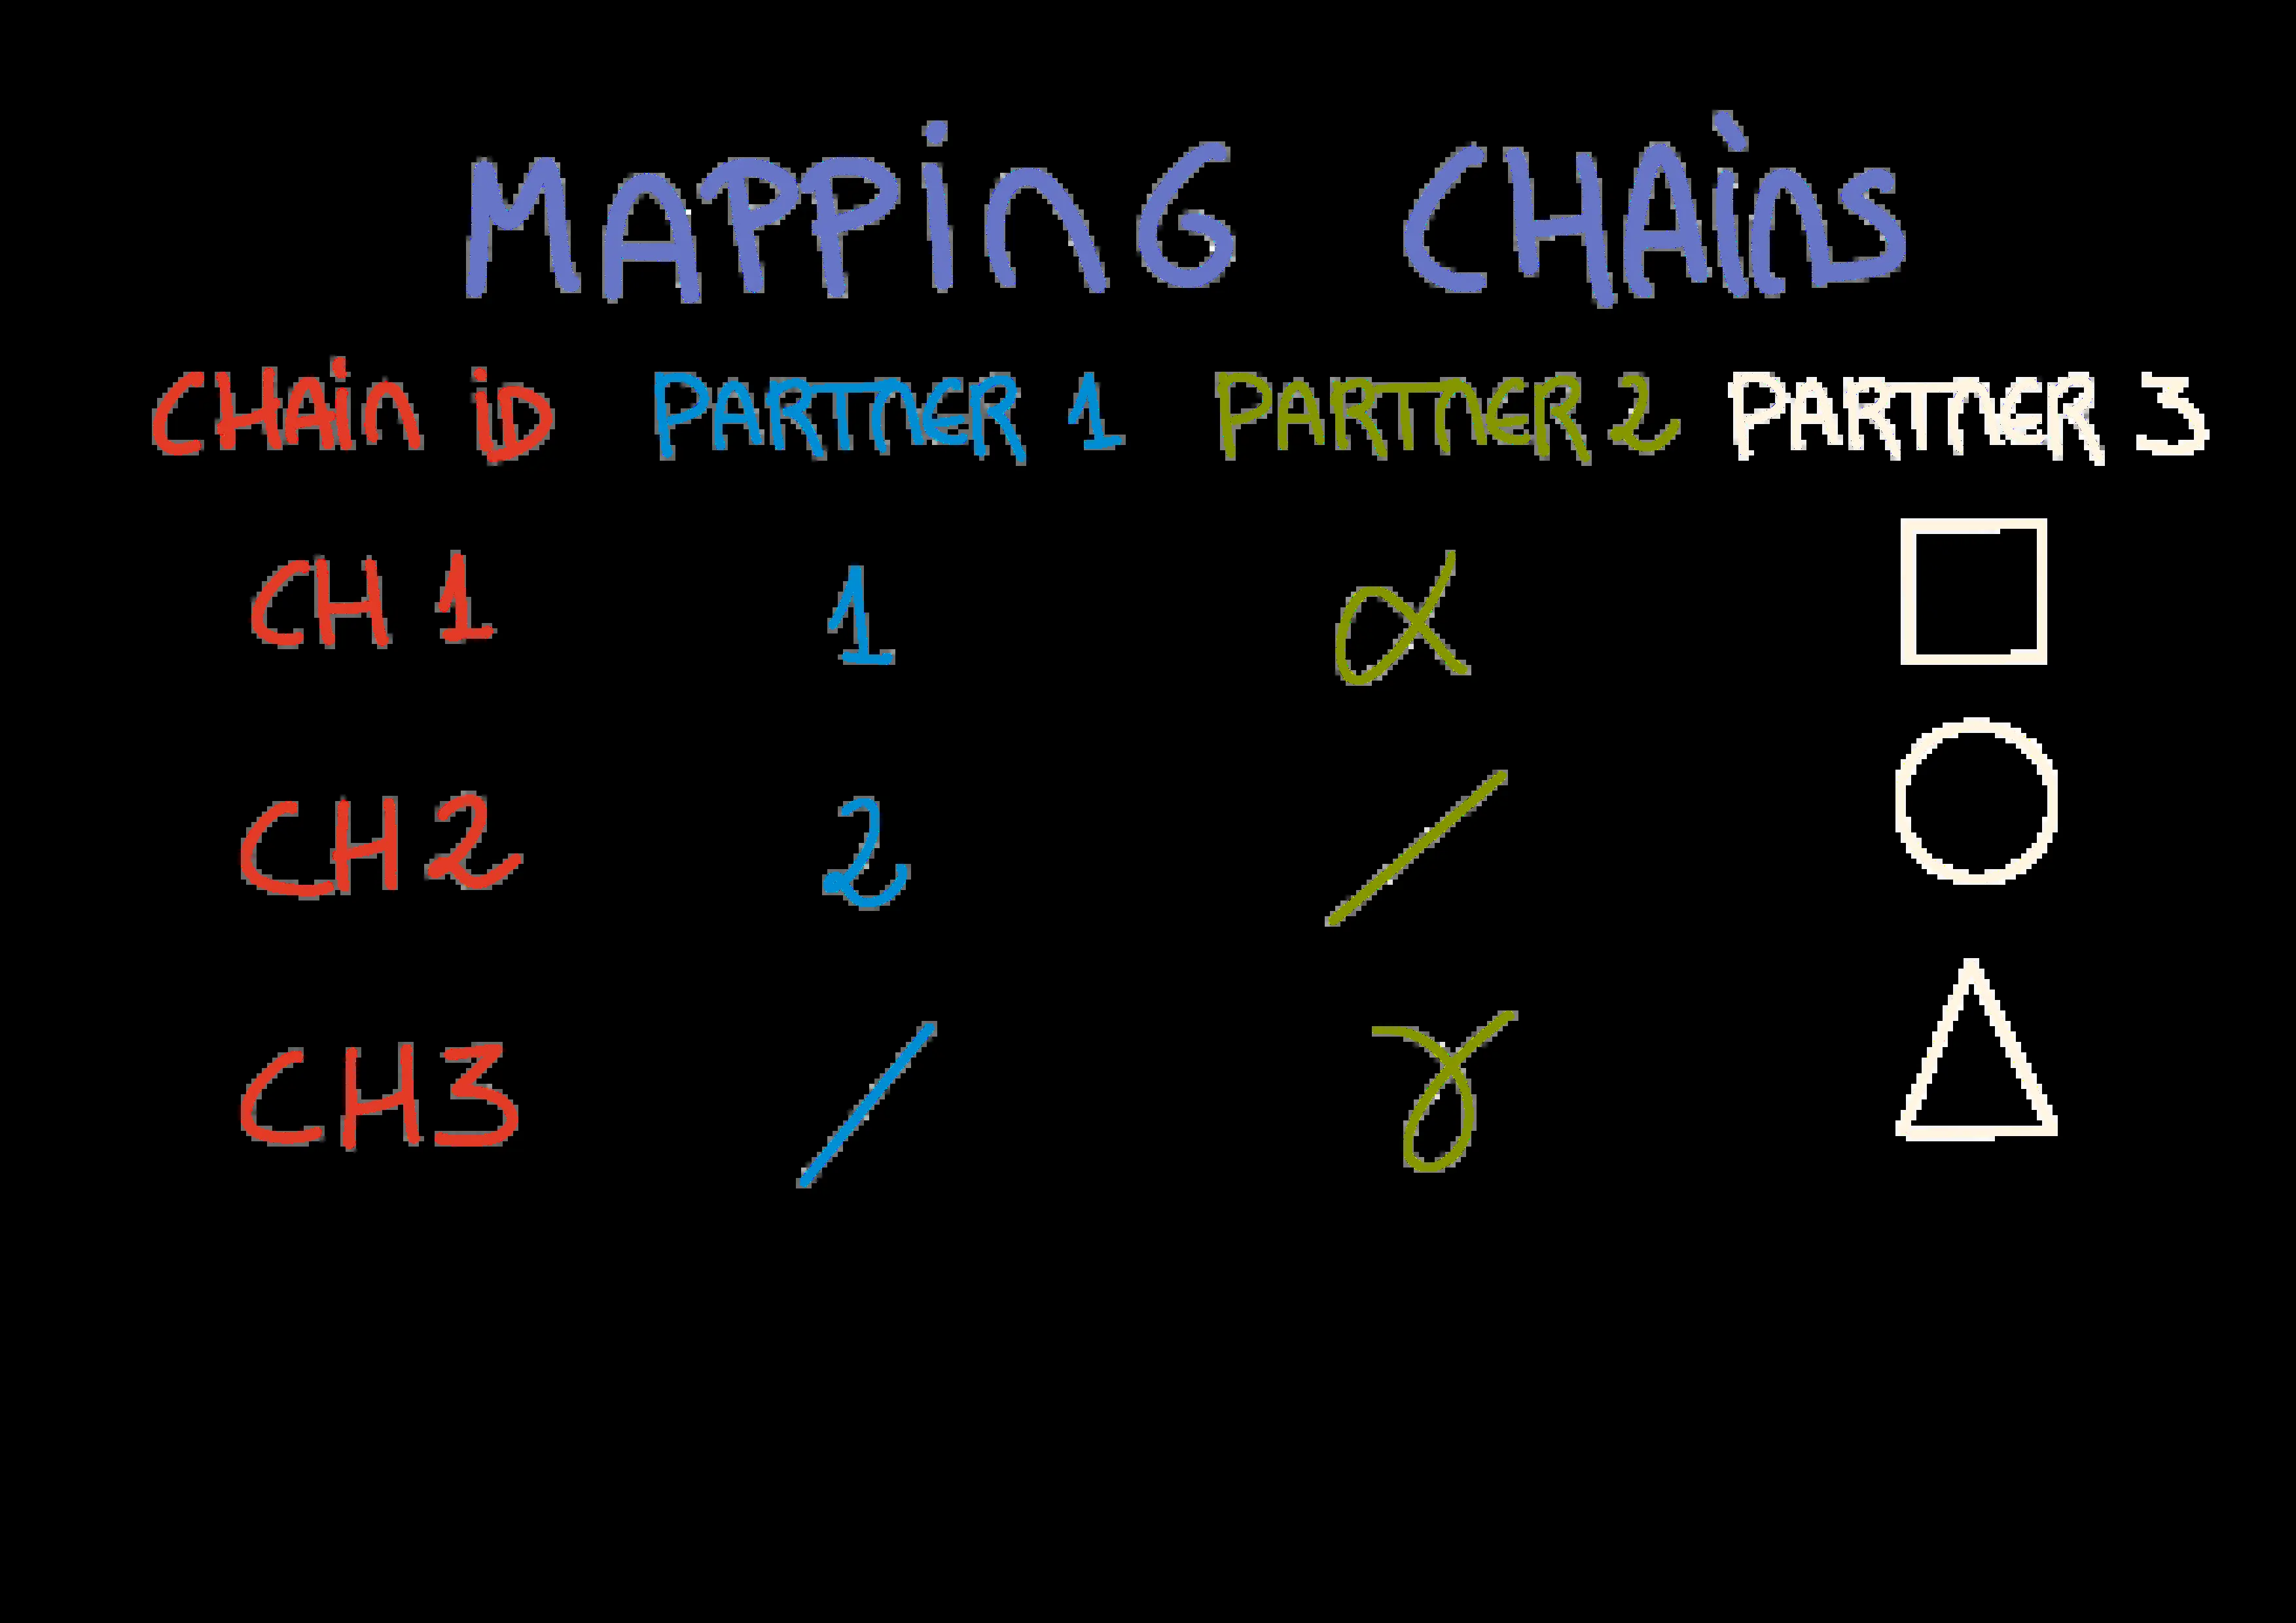 MAPPiNG CHAiNS
CHAiN iD PARTNER 1 PARTNER 2 PARTNER 3
CH 1 1 α □
CH2 2 / ○
CH3 / γ △